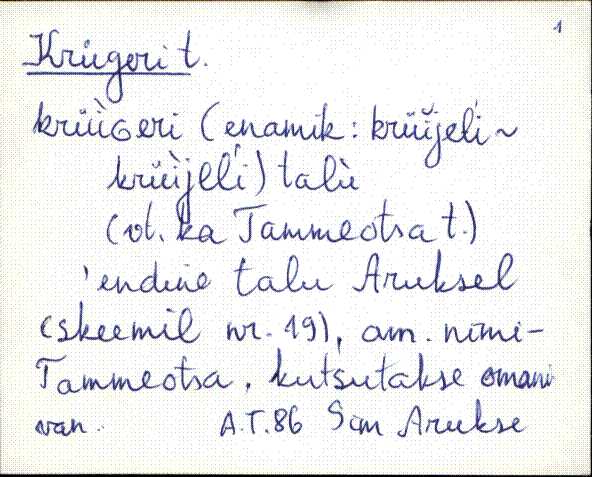 1
Krügeri t.
krüìGeri (enamik: krüijeĺi ~
krüìjeĺi) talù
(vt. ka Tammeotsa t.)
'endine talu Aruksel
(skeemil nr. 19), am. nimi-
Tammeotsa, kutsutakse omani
van. A.T.86 Sim Arukse